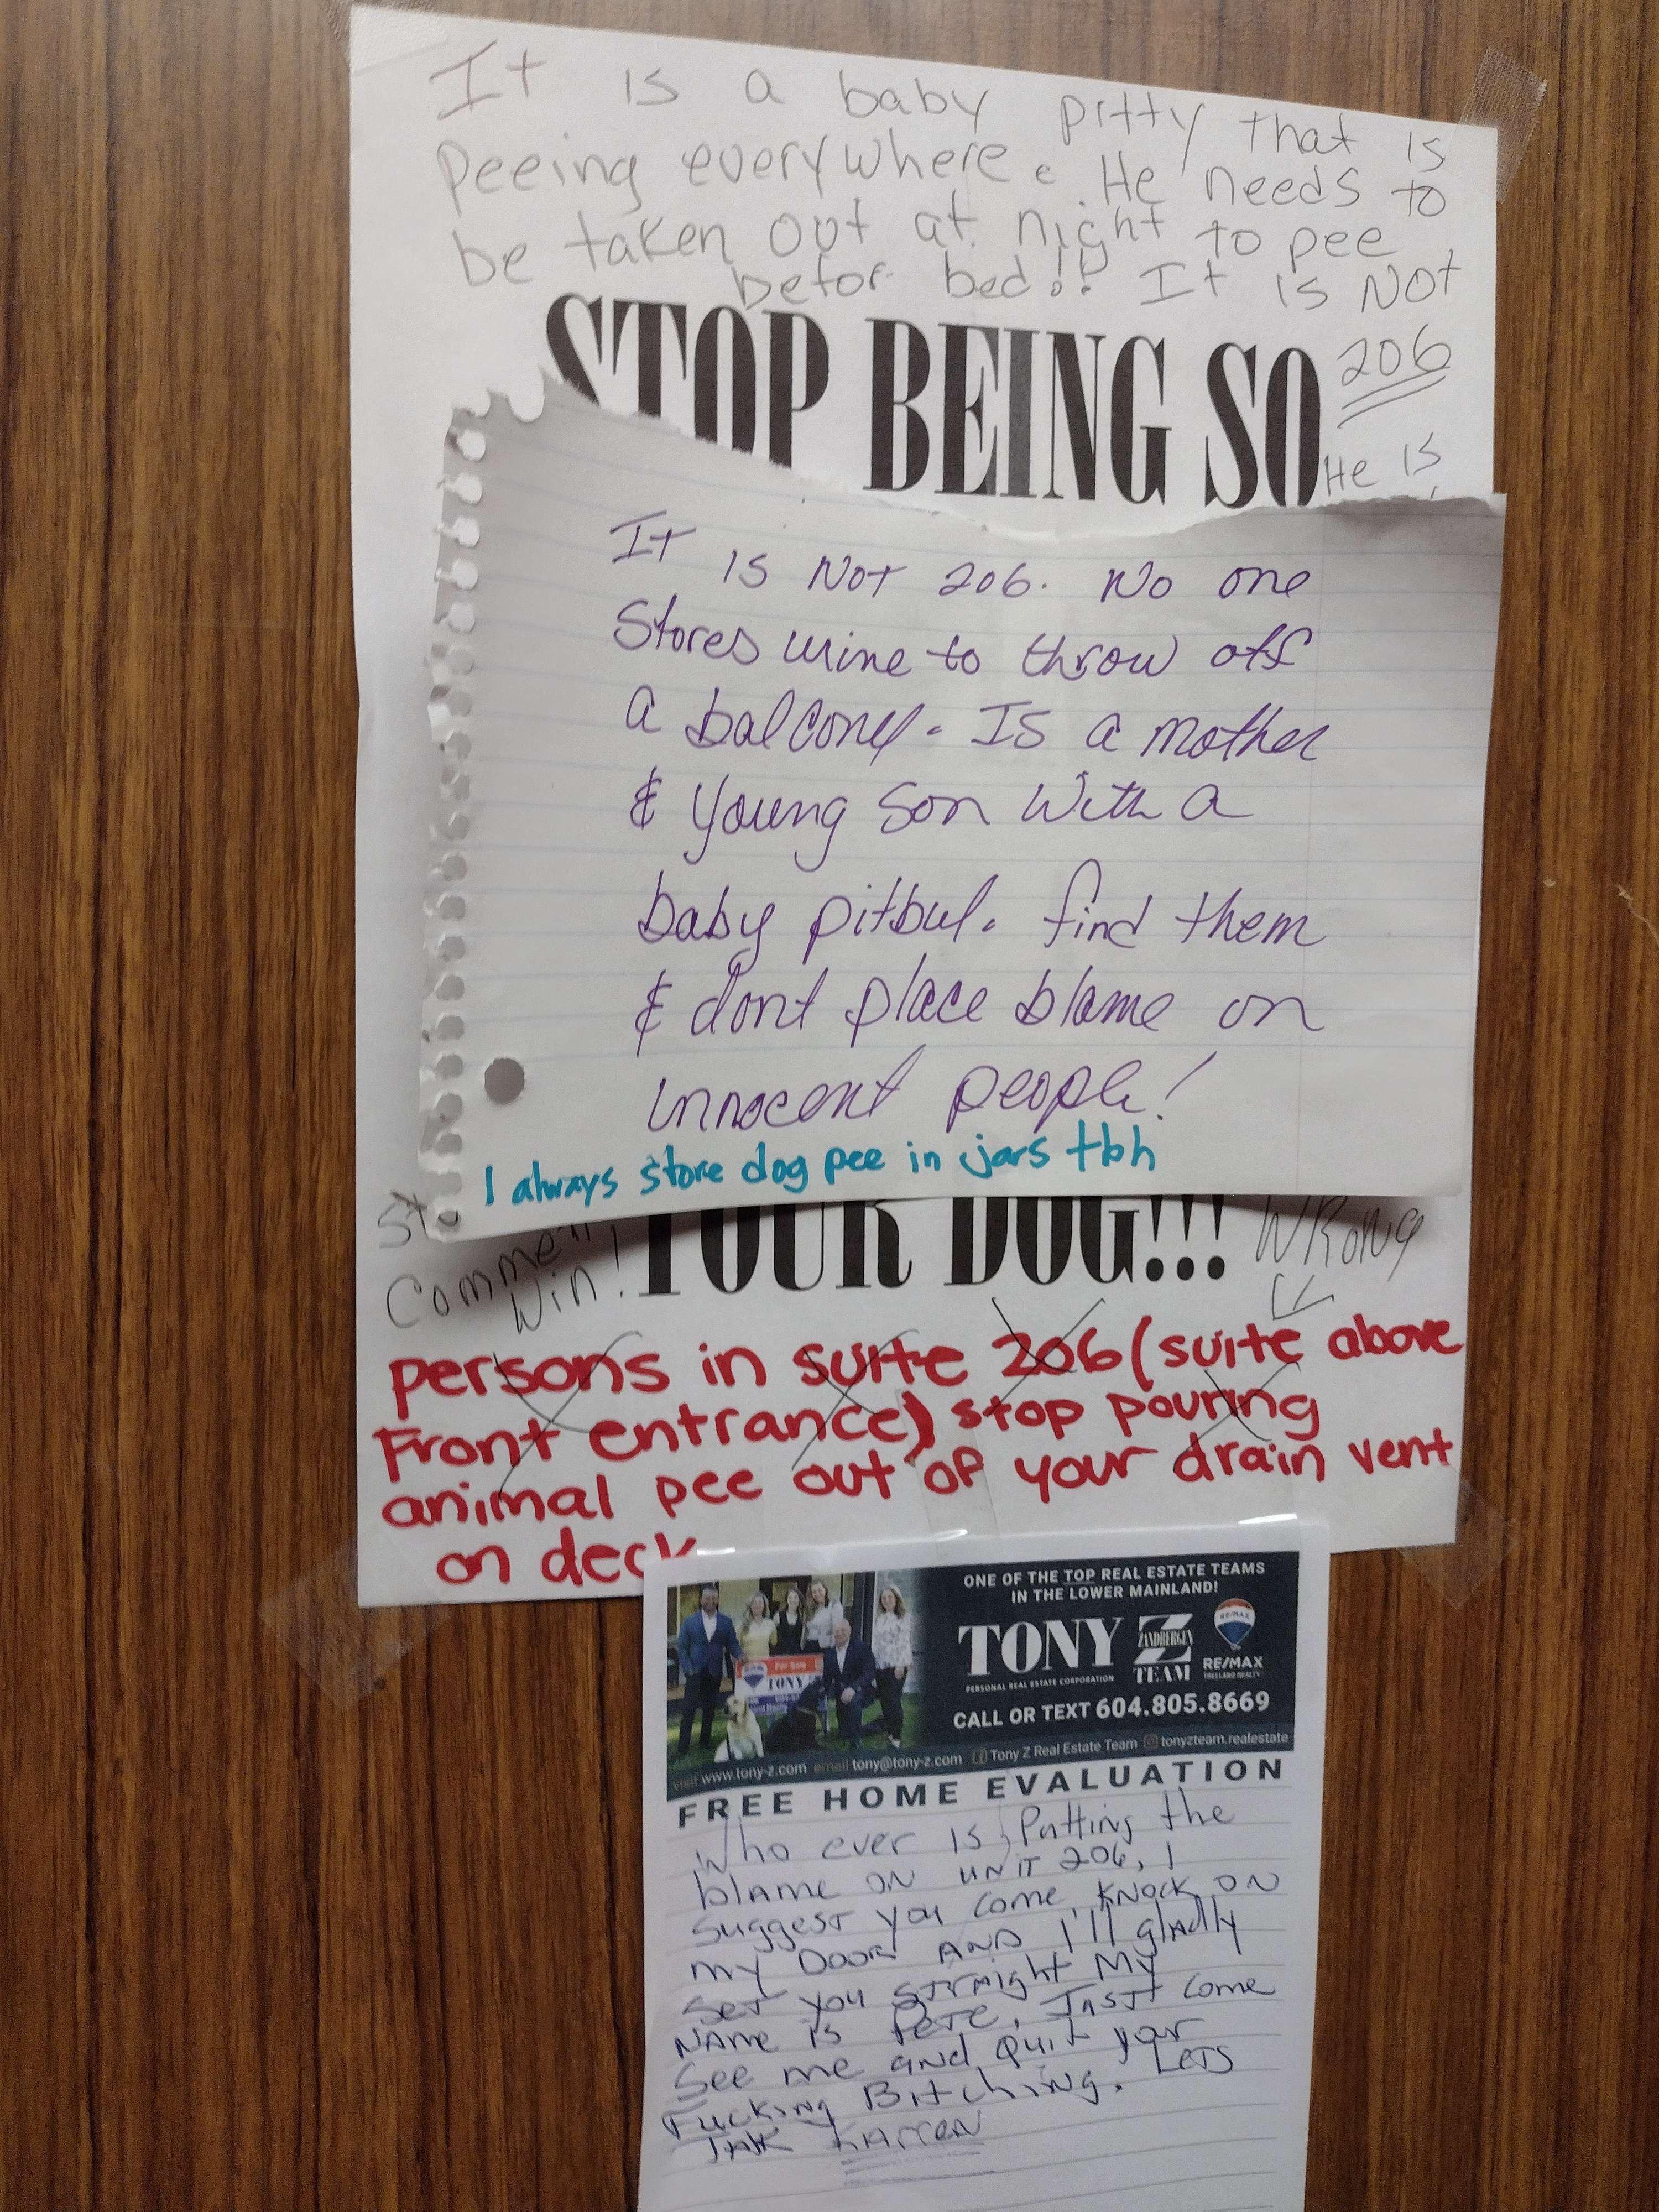 It is a baby pitty that is
peeing everywhere. He needs to
be taken out at night to pee
befor bed!! It is NOT
206
STOP BEING SO
He is
It is Not 206. No one
Stores urine to throw off
a balcony. Is a mother
& young son with a
baby pitbul. find them
& dont place blame on
innocent people!
I always store dog pee in jars tbh
YOUR DOG!!!
WRONG
Win!
persons in suite 206 (suite above
Front entrance) stop pouring
animal pee out of your drain vent
on deck
ONE OF THE TOP REAL ESTATE TEAMS
IN THE LOWER MAINLAND!
TONY Z ZANDBERGEN TEAM RE/MAX
PERSONAL REAL ESTATE CORPORATION TREELAND REALTY
For Sale
TONY
CALL OR TEXT 604.805.8669
visit www.tony-z.com email tony@tony-z.com Tony Z Real Estate Team tonyzteam.realestate
FREE HOME EVALUATION
Who ever is Putting the
blame on unit 206, I
suggest you come, knock on
my Door AND I'll gladly
set you straight My
Name is Pete, Just come
see me and quit your
Fucking Bitching. Lets
Talk Karren